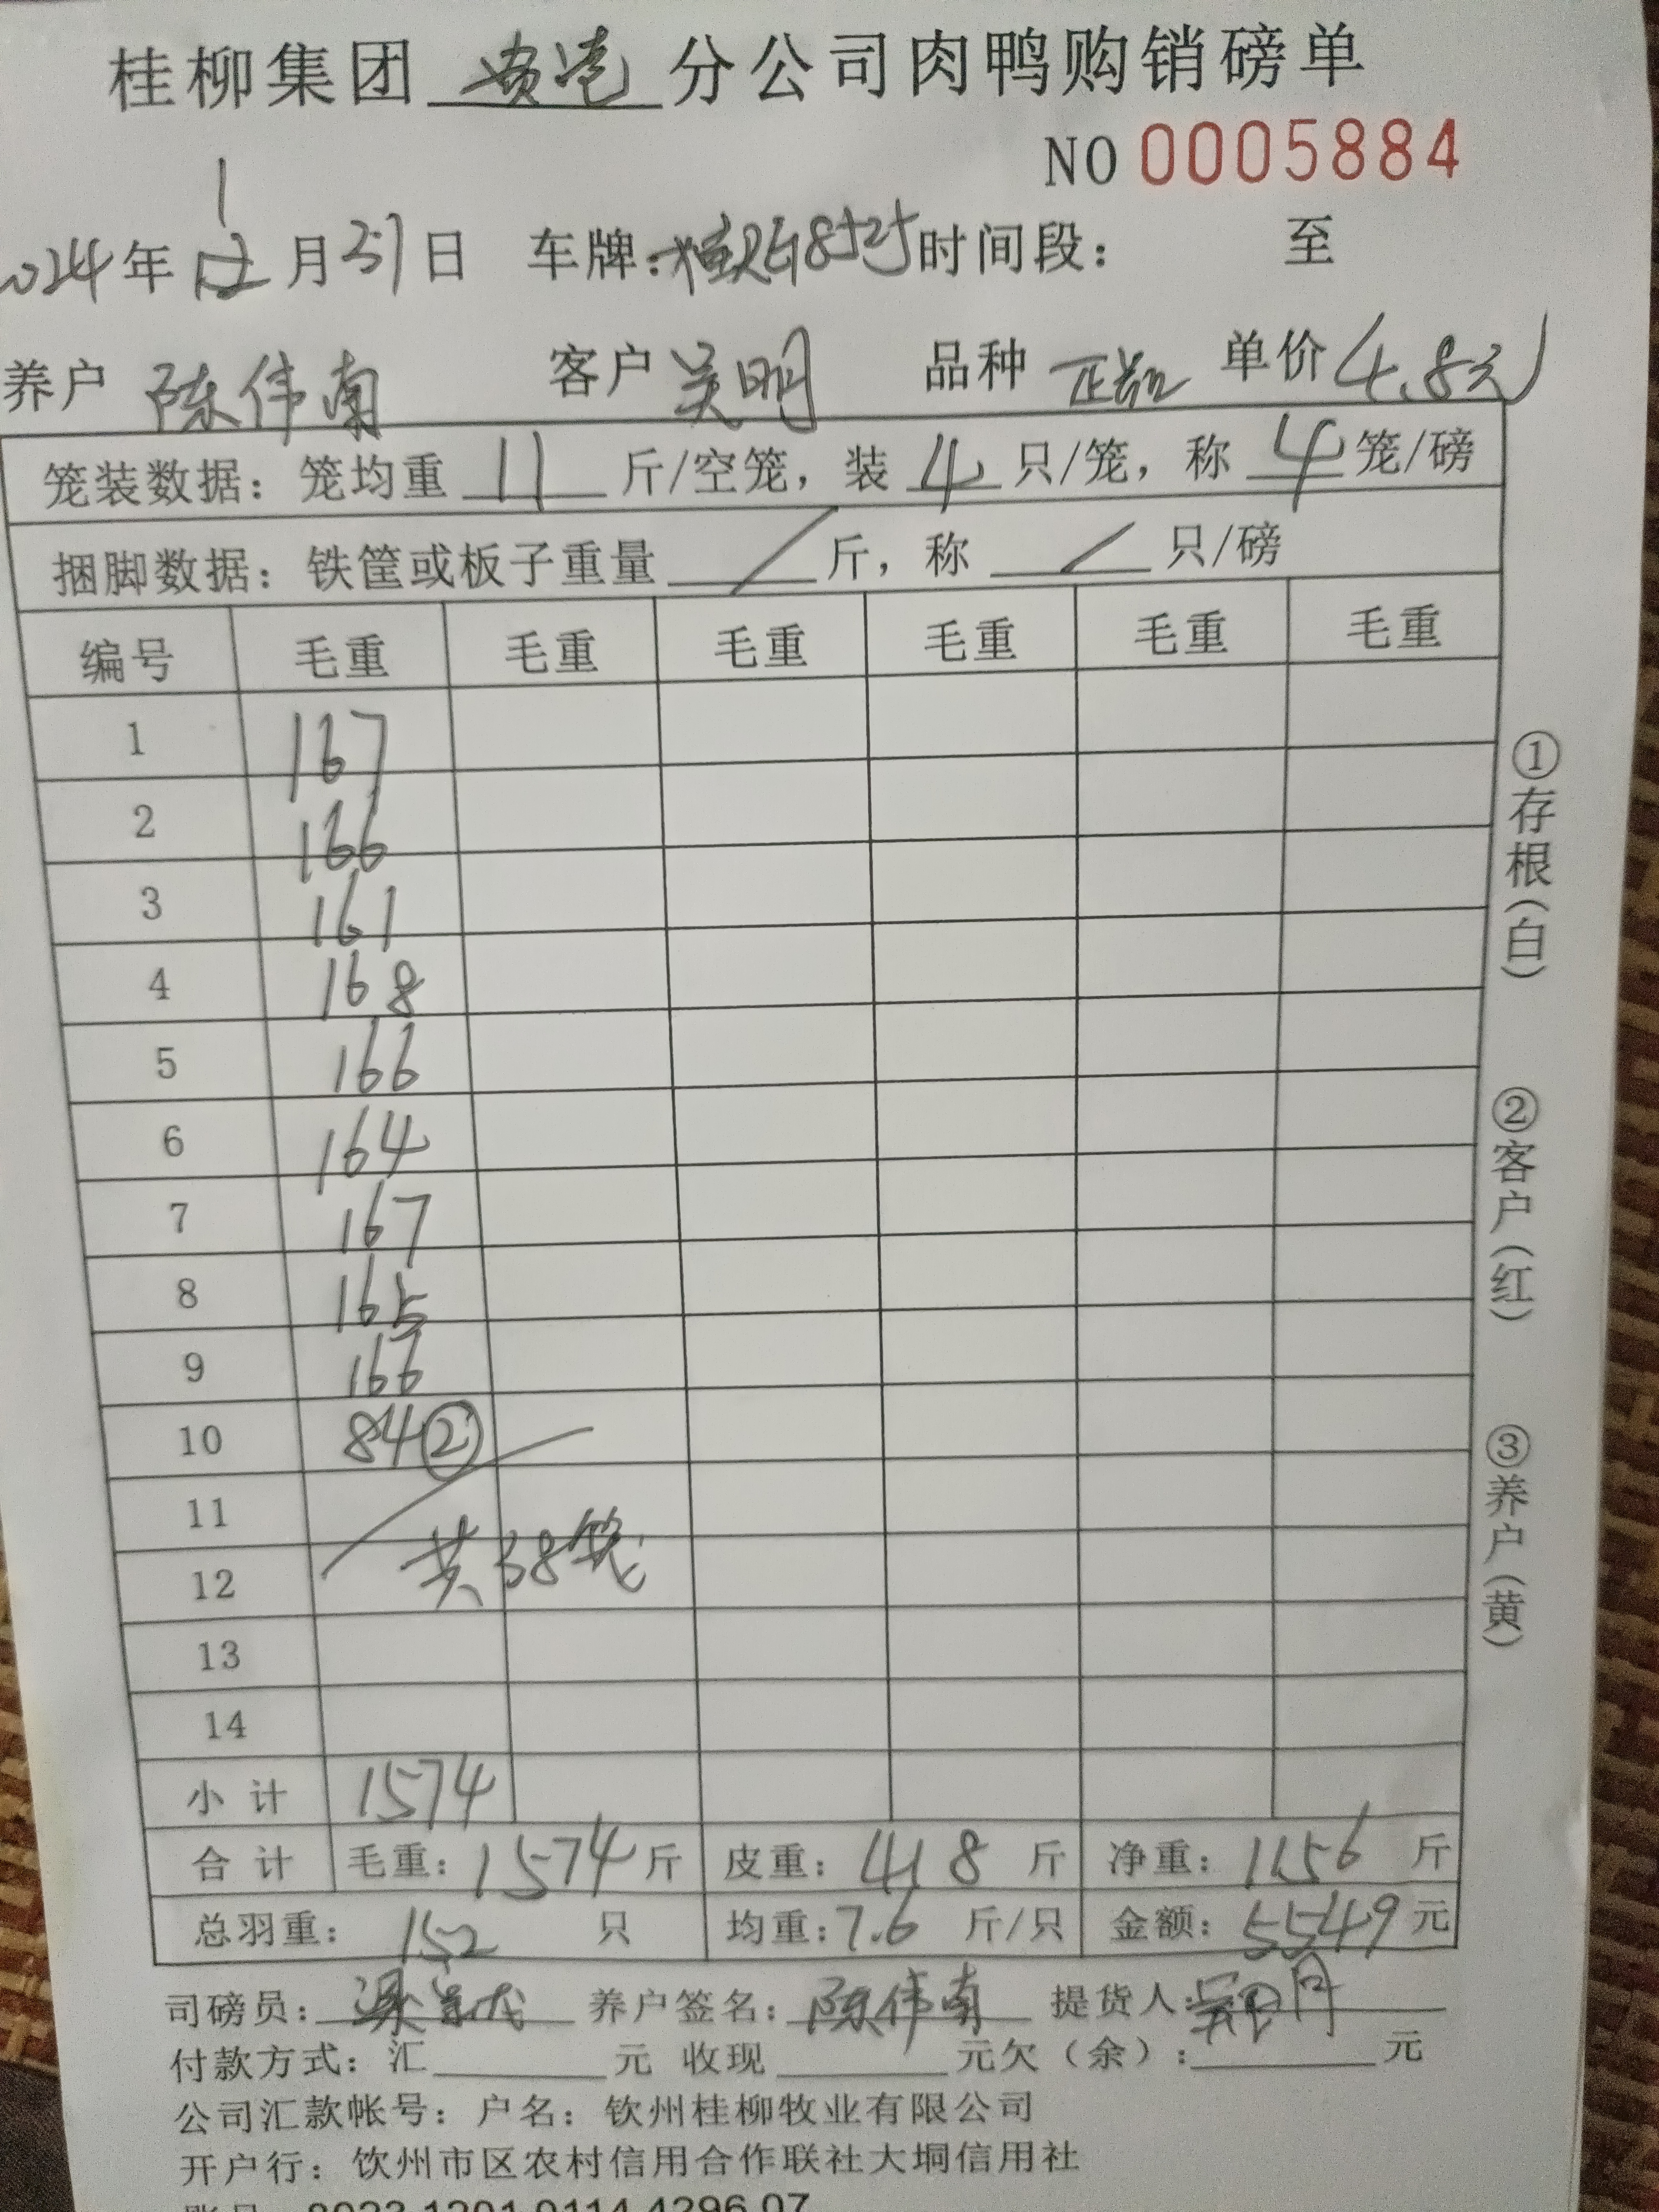 桂柳集团 贵港 分公司肉鸭购销磅单
NO 0005884
1
2024年12月31日 车牌: 时间段: 至
养户 陈伟南 客户 吴明 品种 正品 单价 4.8元
笼装数据: 笼均重 11 斤/空笼, 装 4 只/笼, 称 4 笼/磅
捆脚数据: 铁筐或板子重量 / 斤, 称 / 只/磅
编号 毛重 毛重 毛重 毛重 毛重 毛重
1 167
2 166
3 161
4 168
5 166
6 164
7 167
8 165
9 166
10 84②
11
12 共38笼
13
14
小计 1574
合计 毛重: 1574 斤 皮重: 418 斤 净重: 1156 斤
总羽重: 152 只 均重: 7.6 斤/只 金额: 5549 元
司磅员: 养户签名: 陈伟南 提货人:
付款方式: 汇 元 收现 元欠(余): 元
公司汇款帐号: 户名: 钦州桂柳牧业有限公司
开户行: 钦州市区农村信用合作联社大垌信用社
①存根(白)
②客户(红)
③养户(黄)